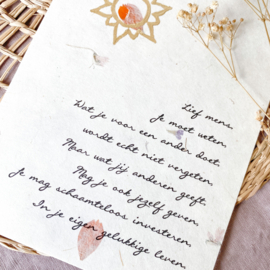 Lief mens.
Je moet weten.
Wat je voor een ander doet.
wordt echt niet vergeten.
Maar wat jij anderen geeft.
Mag je ook jezelf geven.
Je mag schaamteloos investeren.
In je eigen gelukkige leven.